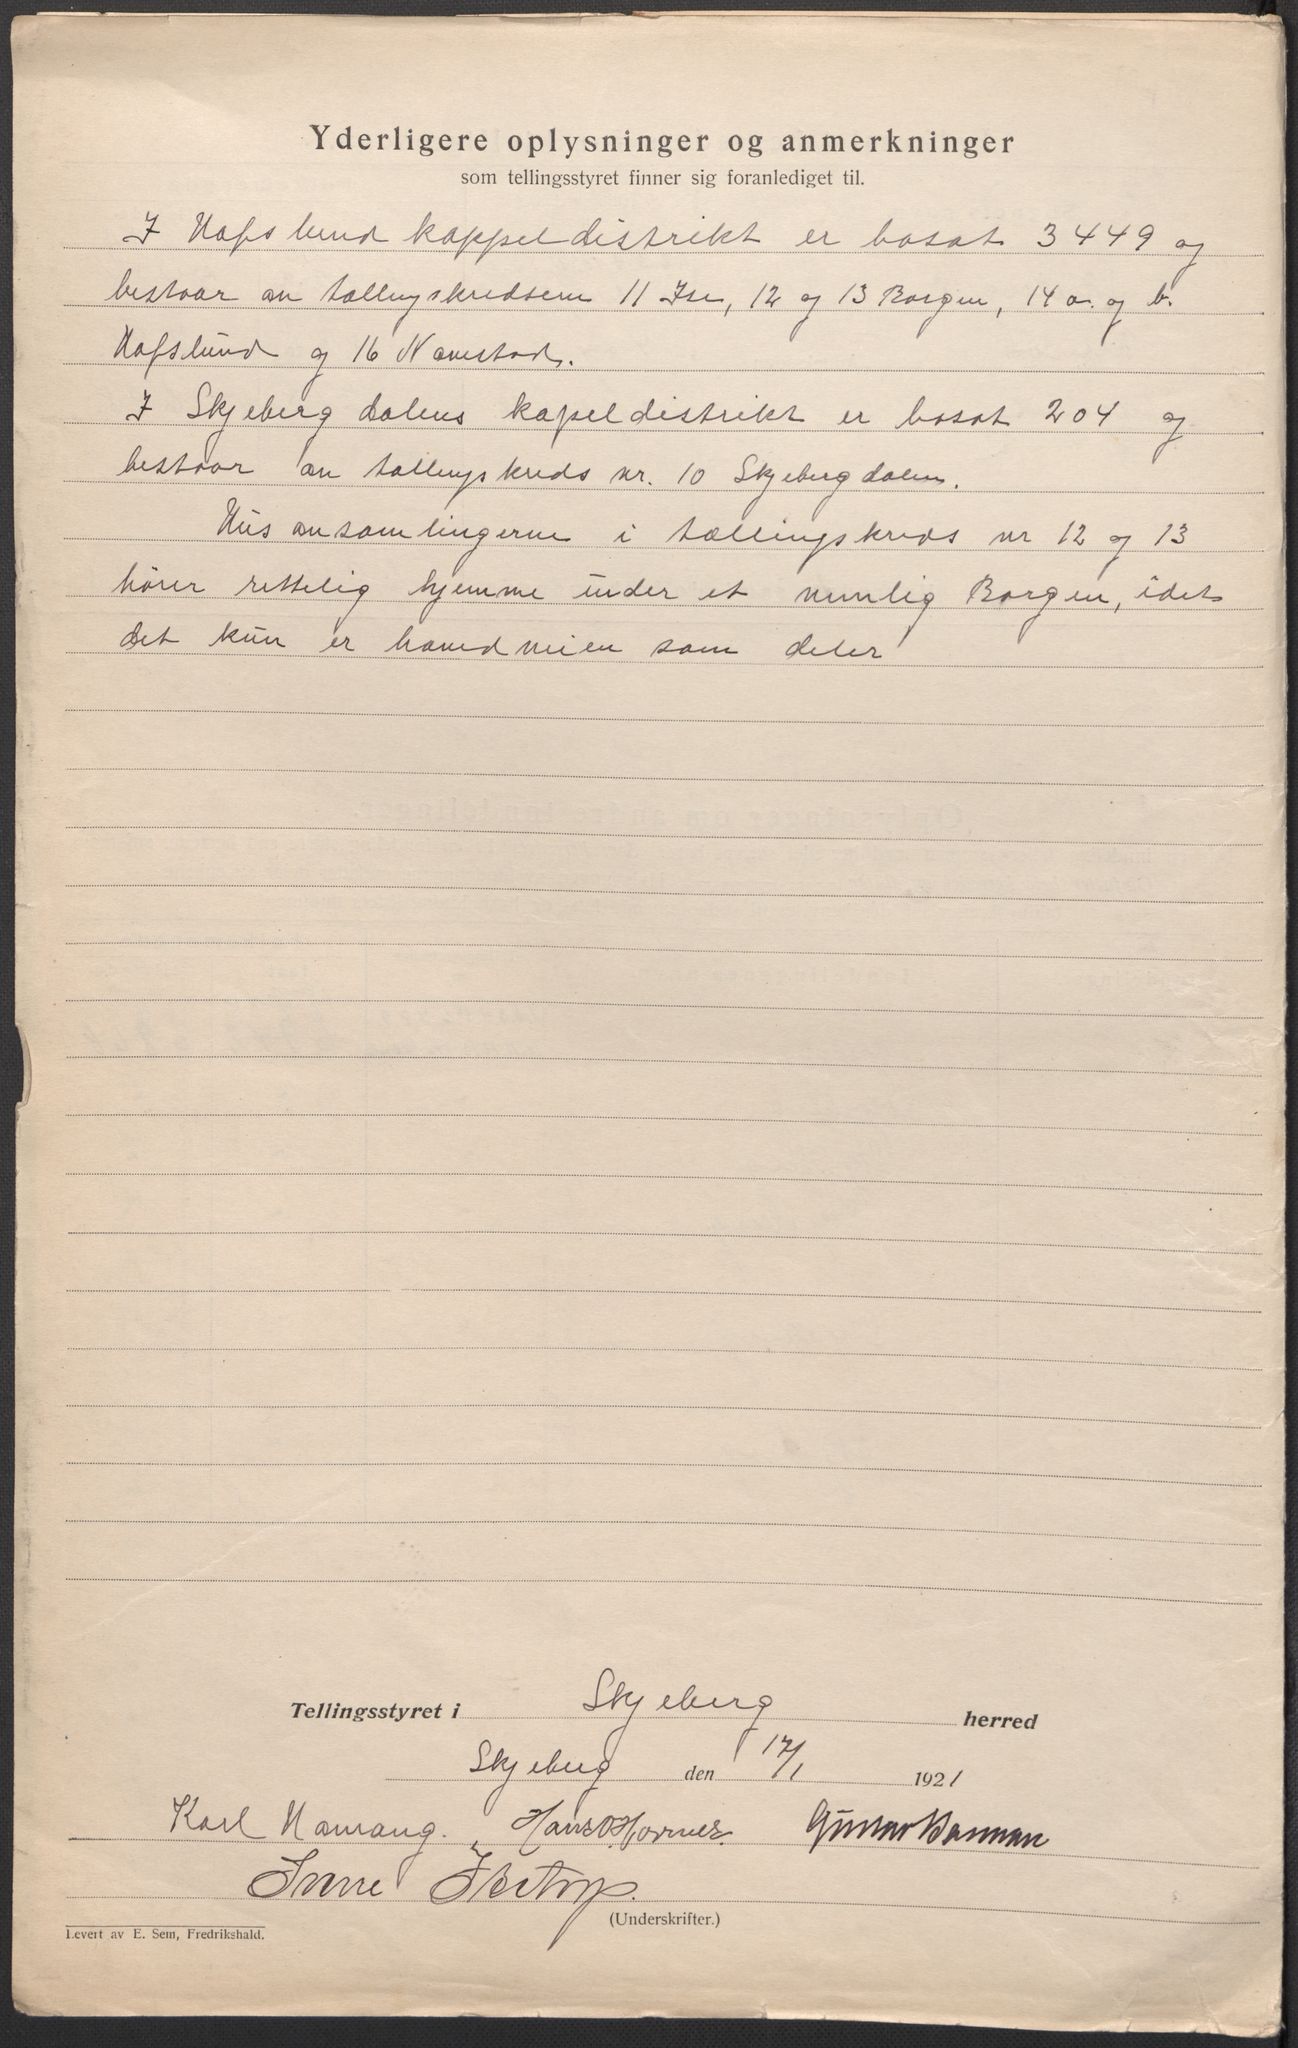 Yderligere oplysninger og anmerkninger
som tellingsstyret finner sig foranlediget til.
I Hafslund kappeldistrikt er bosat 3449 og
bestaar av tællingskredsene 11 Ise, 12 og 13 Borgen, 14 a. og b.
Hafslund og 16 Navestad.
I Skjebergdalens kapeldistrikt er bosat 204 og
bestaar av tællingskreds nr. 10 Skjebergdalen.
Husansamlingerne i tællingskreds nr 12 og 13
hører rettelig hjemme under et nemlig Borgen, idet
det kun er hovedveien som deler
Tellingsstyret i Skjeberg herred
Skjeberg den 17/1 1921
Karl Hans Gustav
(Underskrifter.)
Levert av E. Sem, Fredrikshald.